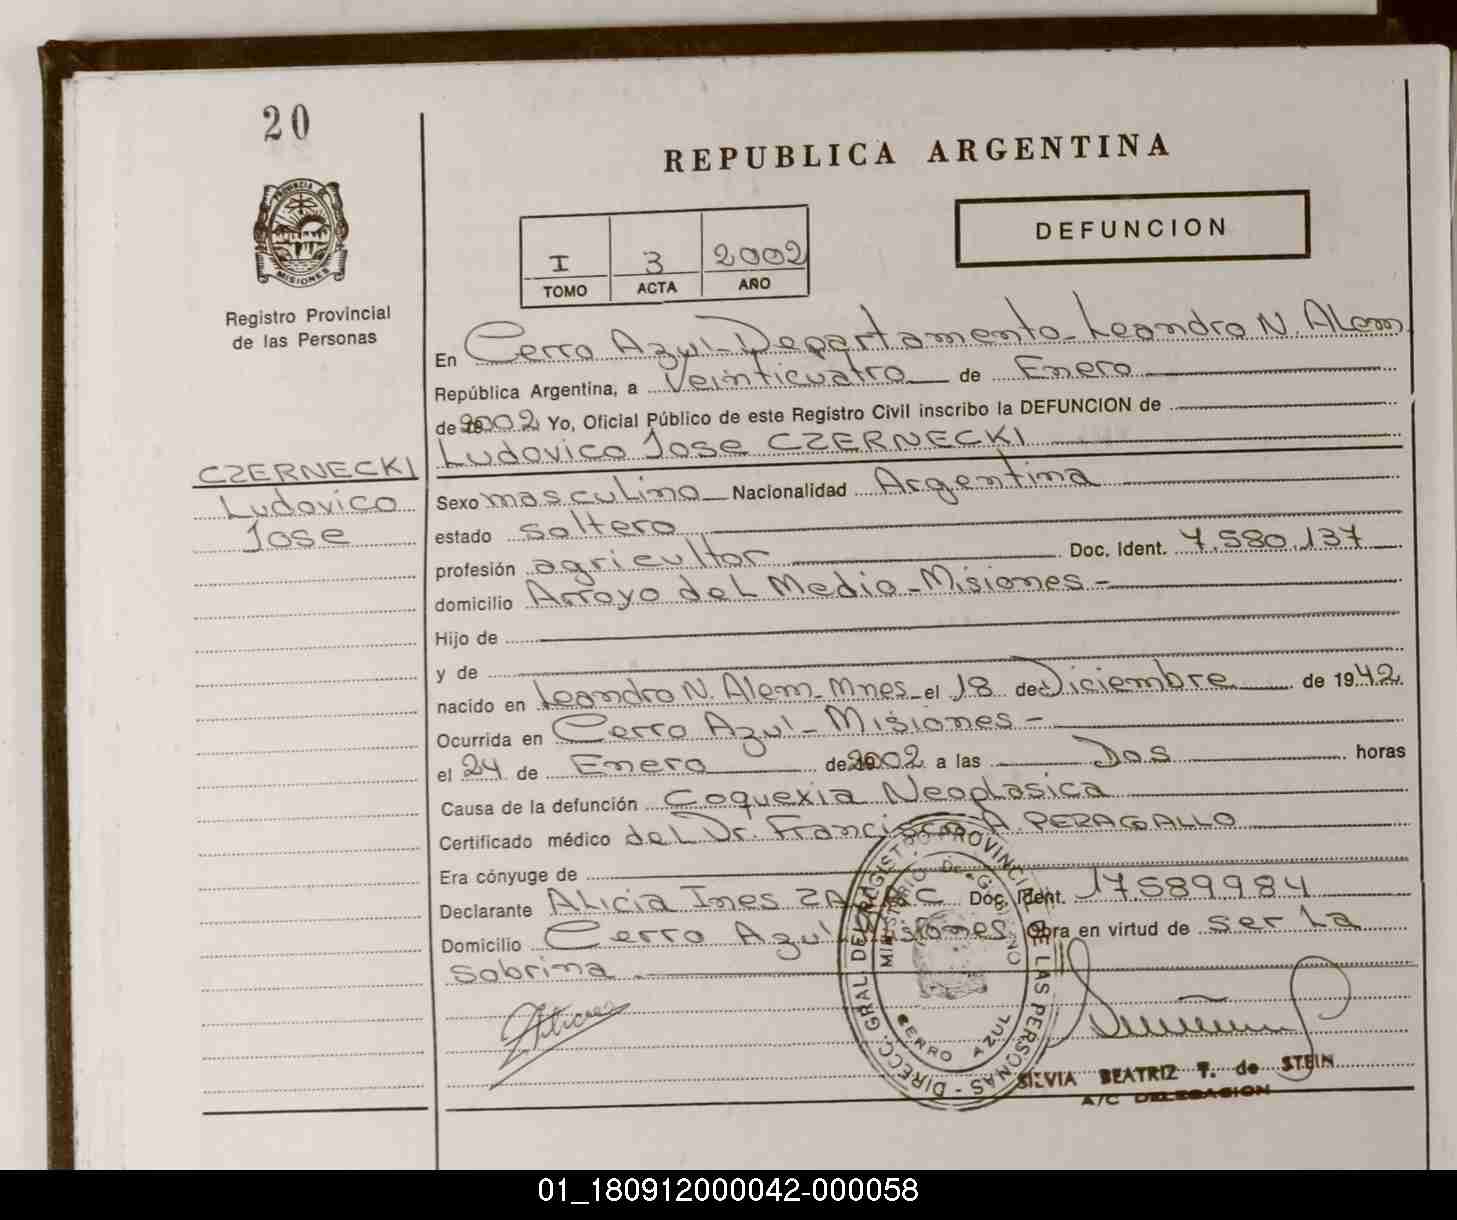 20
PROVINCIA DE
MISIONES
Registro Provincial
de las Personas
CZERNECKI
Ludovico
Jose
REPUBLICA ARGENTINA
I 3 2002
TOMO ACTA AÑO
DEFUNCION
En Cerro Azul - Departamento - Leandro N. Alem
República Argentina, a Veinticuatro de Enero
de 2002 Yo, Oficial Público de este Registro Civil inscribo la DEFUNCION de
Ludovico Jose CZERNECKI
Sexo masculino Nacionalidad Argentina
estado soltero
profesión agricultor Doc. Ident. 7.580.137
domicilio Arroyo del Medio - Misiones -
Hijo de
y de
nacido en Leandro N. Alem - Mnes - el 18 de Diciembre de 1942.
Ocurrida en Cerro Azul - Misiones -
el 24 de Enero de 2002 a las Dos horas
Causa de la defunción Coquexia Neoplasica
Certificado médico del Dr. Francisco A. PERAGALLO
Era cónyuge de
Declarante Alicia Ines Doc. Ident. 17.589.984
Domicilio Cerro Azul Misiones Obra en virtud de ser la
sobrina
DIRECC. GRAL. DEL REGISTRO PROVINCIAL DE LAS PERSONAS
MINISTERIO DE GOBIERNO
CERRO AZUL
SILVIA BEATRIZ T. de STEIN
A/C DELEGACION
01_180912000042-000058